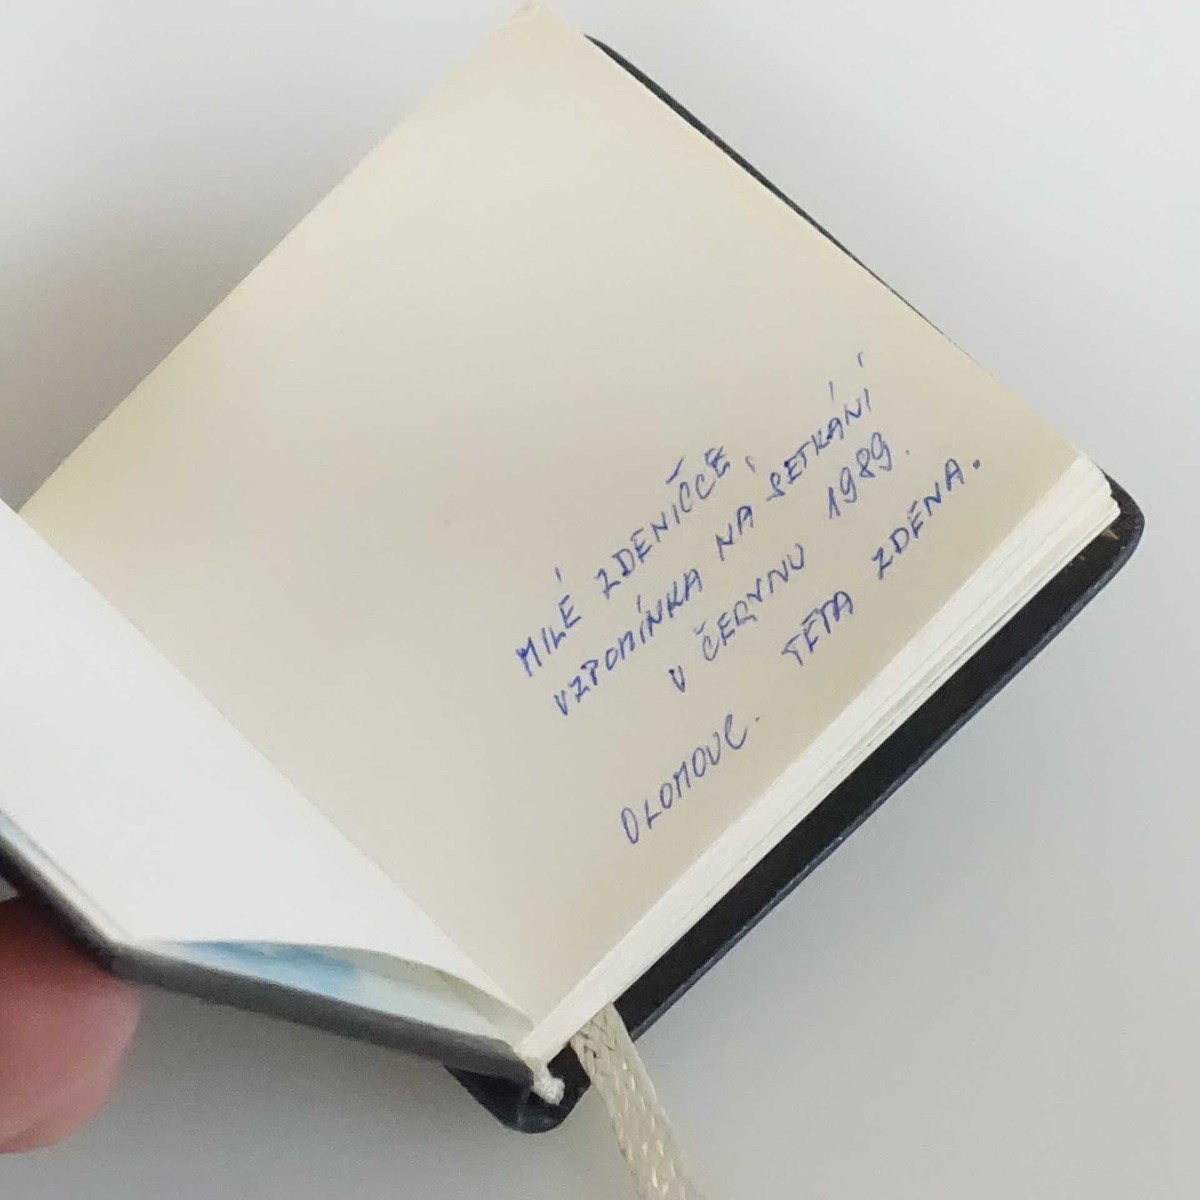 MILÉ ZDENIČCE,
VZPOMÍNKA NA SETKÁNÍ
V ČERVNU 1989.
TETA ZDENA.
OLOMOUC.